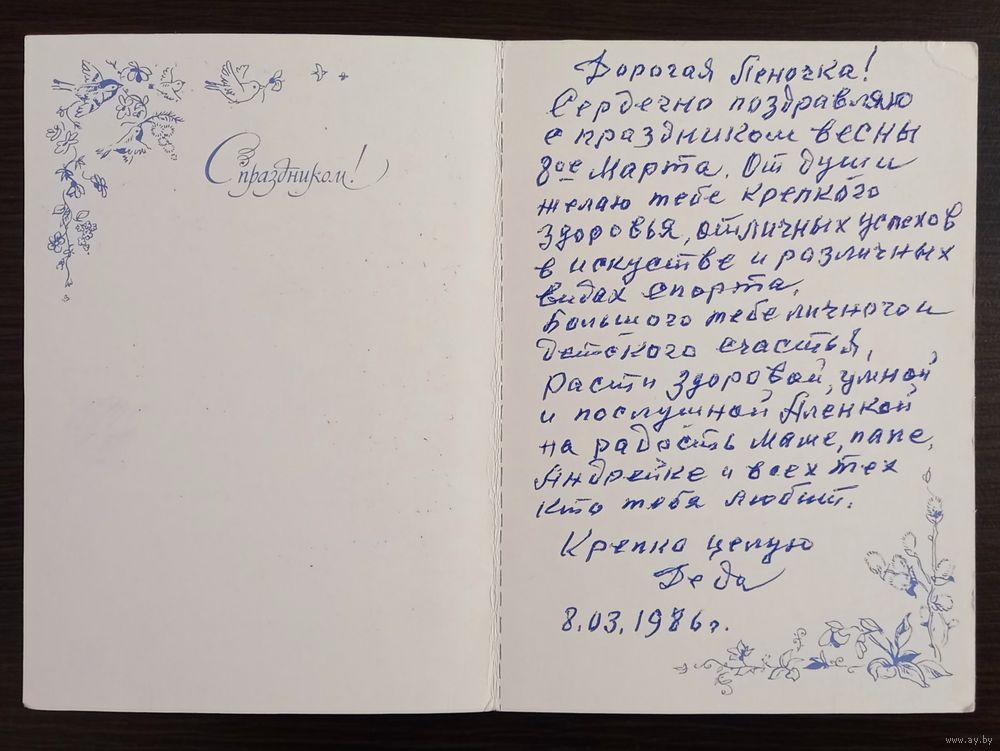 С праздником!
Дорогая Леночка!
Сердечно поздравляю
с праздником весны
8ое Марта. От души
желаю тебе крепкого
здоровья, отличных успехов
в искустве и различных
видах спорта.
Большого тебе личного и
детского счастья,
расти здоровой, умной
и послушной Аленкой
на радость маме, папе,
Андрейке и всех тех
кто тебя любит.
Крепко целую
Деда
8.03.1986г.
www.ay.by